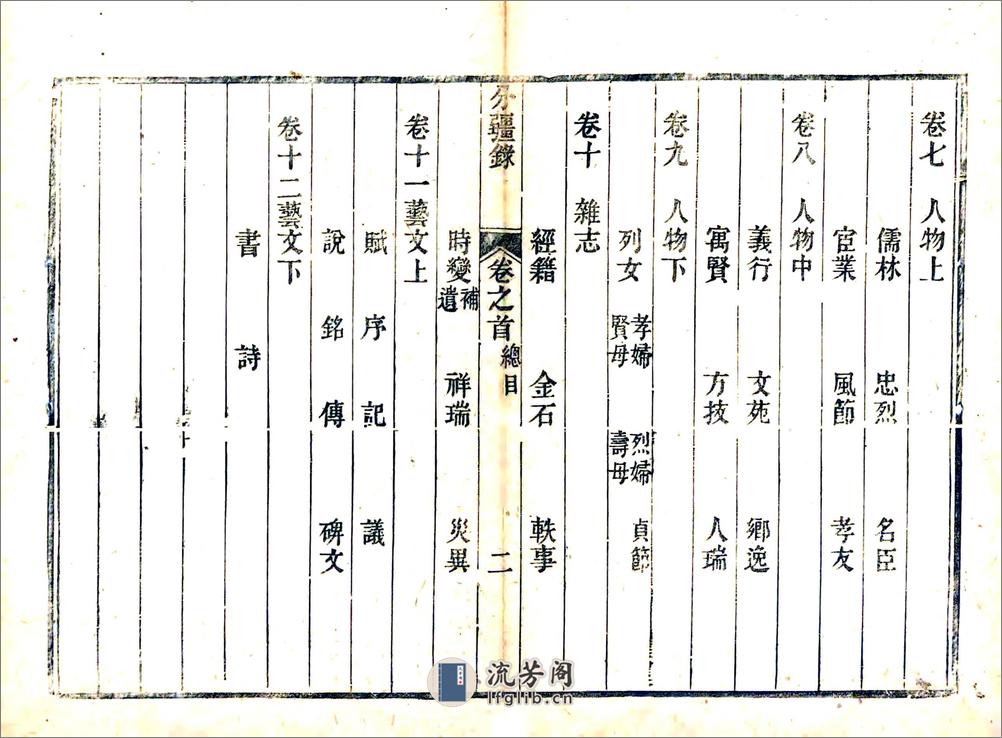 卷七 人物上
儒林 忠烈 名臣
宦業 風節 孝友
卷八 人物中
義行 文苑 鄉逸
寓賢 方技 人瑞
卷九 人物下
列女 孝婦 賢母 烈婦 壽母 貞節
卷十 雜志
經籍 金石 軼事
分疆錄 卷之首 總目 二
時變補遺 祥瑞 災異
卷十一藝文上
賦 序 記 議
說 銘 傳 碑文
卷十二藝文下
書 詩
流芳阁
lfglib.cn